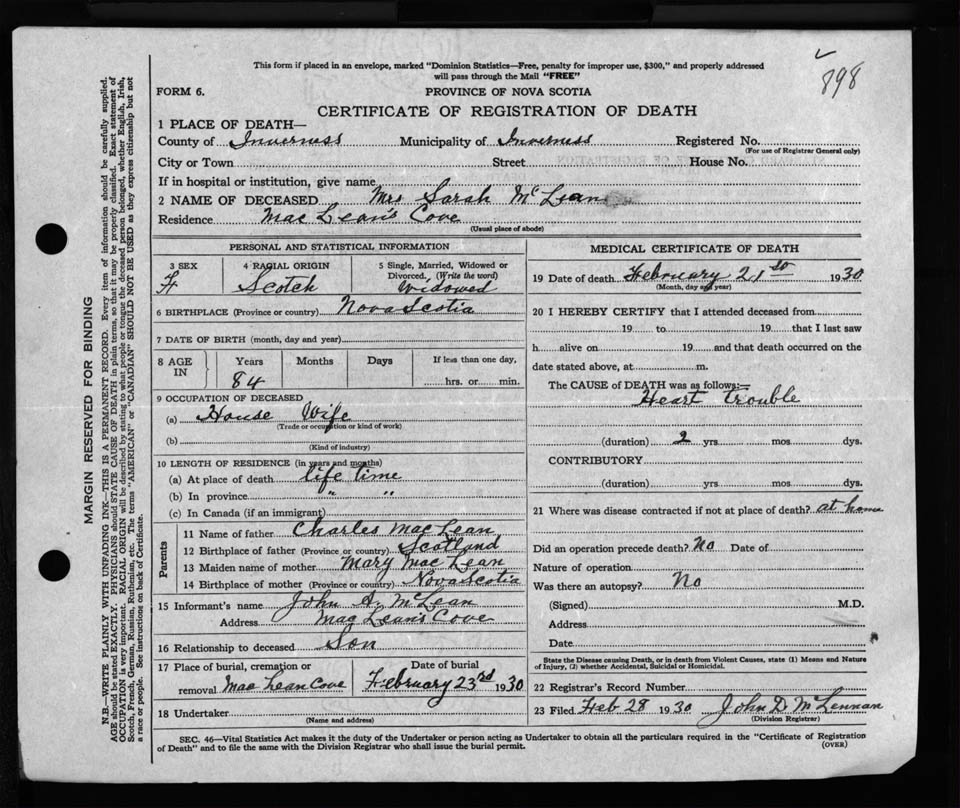 898
This form if placed in an envelope, marked "Dominion Statistics—Free, penalty for improper use, $300," and properly addressed
will pass through the Mail "FREE"
FORM 6. PROVINCE OF NOVA SCOTIA
CERTIFICATE OF REGISTRATION OF DEATH
1 PLACE OF DEATH—
County of Inverness Municipality of Inverness Registered No.
(For use of Registrar General only)
City or Town Street House No.
If in hospital or institution, give name
2 NAME OF DECEASED Mrs Sarah McLean
Residence MacLean's Cove
(Usual place of abode)
PERSONAL AND STATISTICAL INFORMATION
3 SEX F
4 RACIAL ORIGIN Scotch
5 Single, Married, Widowed or Divorced. (Write the word) Widowed
6 BIRTHPLACE (Province or country) Nova Scotia
7 DATE OF BIRTH (month, day and year)
8 AGE IN Years Months Days If less than one day,
84 hrs. or min.
9 OCCUPATION OF DECEASED
(a) House Wife
(Trade or occupation or kind of work)
(b)
(Kind of industry)
10 LENGTH OF RESIDENCE (in years and months)
(a) At place of death life time
(b) In province " "
(c) In Canada (if an immigrant)
Parents
11 Name of father Charles MacLean
12 Birthplace of father (Province or country) Scotland
13 Maiden name of mother Mary MacLean
14 Birthplace of mother (Province or country) Nova Scotia
15 Informant's name John A. McLean
Address MacLean's Cove
16 Relationship to deceased Son
17 Place of burial, cremation or removal MacLean Cove
Date of burial February 23rd 1930
18 Undertaker
(Name and address)
MEDICAL CERTIFICATE OF DEATH
19 Date of death February 21st 1930
(Month, day and year)
20 I HEREBY CERTIFY that I attended deceased from
19 to 19 that I last saw
h alive on 19 and that death occurred on the
date stated above, at m.
The CAUSE of DEATH was as follows:—
Heart trouble
(duration) 2 yrs mos dys.
CONTRIBUTORY
(duration) yrs mos dys.
21 Where was disease contracted if not at place of death? at home
Did an operation precede death? No Date of
Nature of operation
Was there an autopsy? No
(Signed) M.D.
Address
Date
State the Disease causing Death, or in death from Violent Causes, state (1) Means and Nature
of Injury, (2) whether Accidental, Suicidal or Homicidal.
22 Registrar's Record Number
23 Filed Feb 28 1930 John D McLennan
(Division Registrar)
SEC. 46—Vital Statistics Act makes it the duty of the Undertaker or person acting as Undertaker to obtain all the particulars required in the "Certificate of Registration
of Death" and to file the same with the Division Registrar who shall issue the burial permit. (OVER)
MARGIN RESERVED FOR BINDING
N.B.—WRITE PLAINLY WITH UNFADING INK—THIS IS A PERMANENT RECORD. Every item of information should be carefully supplied.
AGE should be stated EXACTLY. PHYSICIANS should STATE CAUSE OF DEATH in plain terms, so that it may be properly classified. Exact statement of
OCCUPATION is very important. RACIAL ORIGIN will be described by stating to what people or tongue the deceased person belonged, whether English, Irish,
Scotch, French, German, Russian, Ruthenian, etc. The terms "AMERICAN" or "CANADIAN" SHOULD NOT BE USED as they express citizenship but not
a race or people. See instructions on back of Certificate.